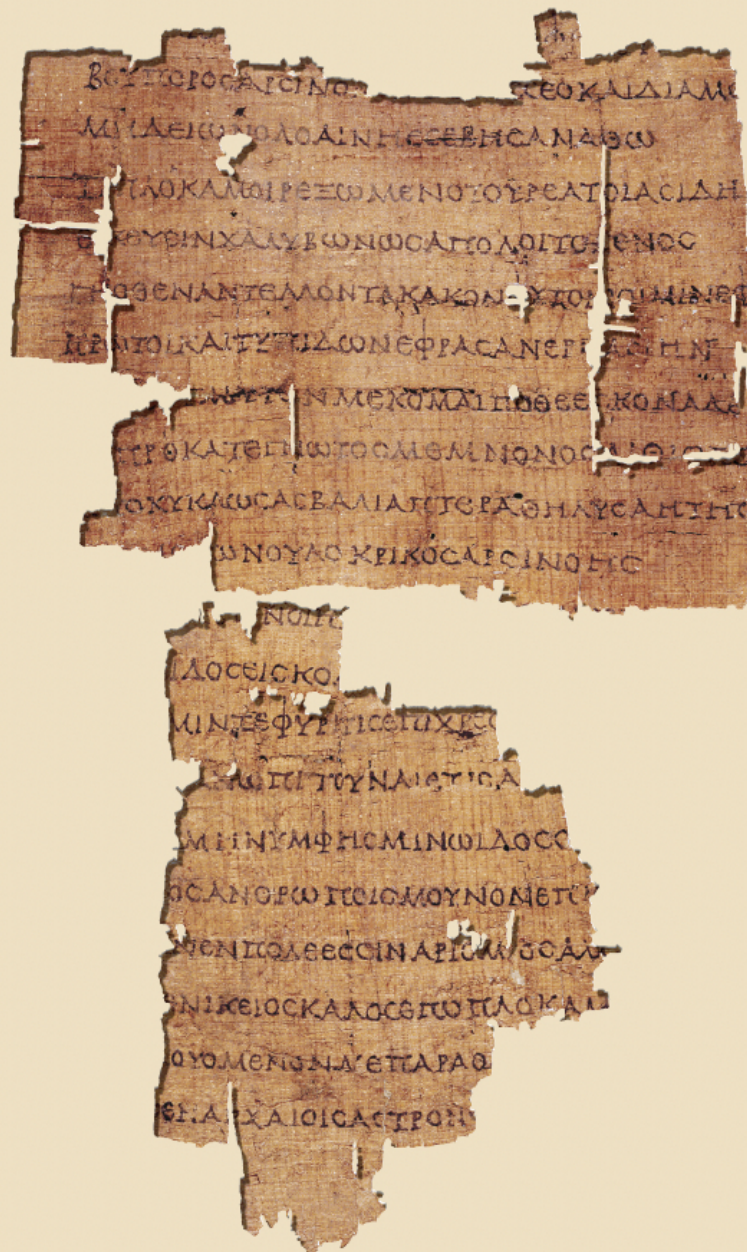 ΒΟΥΠΟΡΟCΑΡCΙΝΟ CΕΟΚΑΙΔΙΑΜΕ
ΜΗΔΕΙΩΝΟΛΟΑΙΝΗΕCΕΒΗCΑΝΑΘΩ
ΤΙΠΛΟΚΑΜΟΙΡΕΞΩΜΕΝΟΤΟΥΡΕΑΤΟΙΑCΙΔΗ
ΧΑΛΥΒΩΝΩCΑΠΟΛΟΙΤΟΓΕΝΟC
ΓΗΟΘΕΝΑΝΤΕΛΛΟΝΤΑΚΑΚΟΝΦΥΤΟΝΟΙΜΙΝΕΦ
ΠΡΩΤΟΙΚΑΙΤΥΠΙΔΩΝΕΦΡΑCΑΝΕΡΓΑCΙΗΝ
ΤΜΗΤΟΝΜΕΚΟΜΑΙΠΟΘΕΕCΚΟΝΑΔΕ
ΠΡΟΚΑΤΕΓΝΩΤΟCΜΕΜΝΟΝΟCΑΙΘΙΟΠΟ
ΤΟΚΥΚΛΩCΑCΒΑΛΙΑΠΤΕΡΑΘΗΛΥCΑΗΤΗC
ΩΝΟΥΛΟΚΡΙΚΟCΑΡCΙΝΟΗC
ΝΟΙΗ
ΙΔΟCΕΙCΚΟ
ΜΙΝΖΕΦΥΡΙΤΙCΕΠΙΧΡΕΟ
ΩΠΙΤΟΥΝΑΙΕΤΙCΑ
ΜΗΝΥΜΦΗCΜΙΝΩΙΔΟCΟ
ΟCΑΝΘΡΩΠΟΙCΜΟΥΝΟΝΕΠΙ
ΕΝΠΟΛΕΕCCΙΝΑΡΙΘΜΙΟCΑΛΛ
ΝΙΚΕΙΟCΚΑΛΟCΕΓΩΠΛΟΚΑΜ
ΟΥΟΜΕΝΟΝΜΕΠΑΡΑΘ
ΕΝΑΡΧΑΙΟΙCΑCΤΡΟΝ